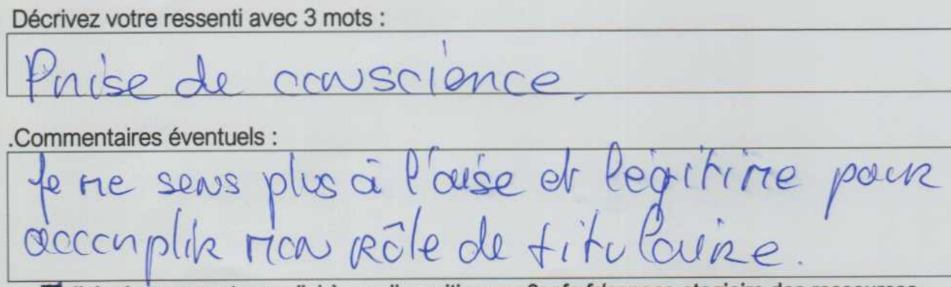 Décrivez votre ressenti avec 3 mots :
Prise de conscience.
.Commentaires éventuels :
Je me sens plus à l'aise et légitime pour
accomplir mon rôle de titulaire.